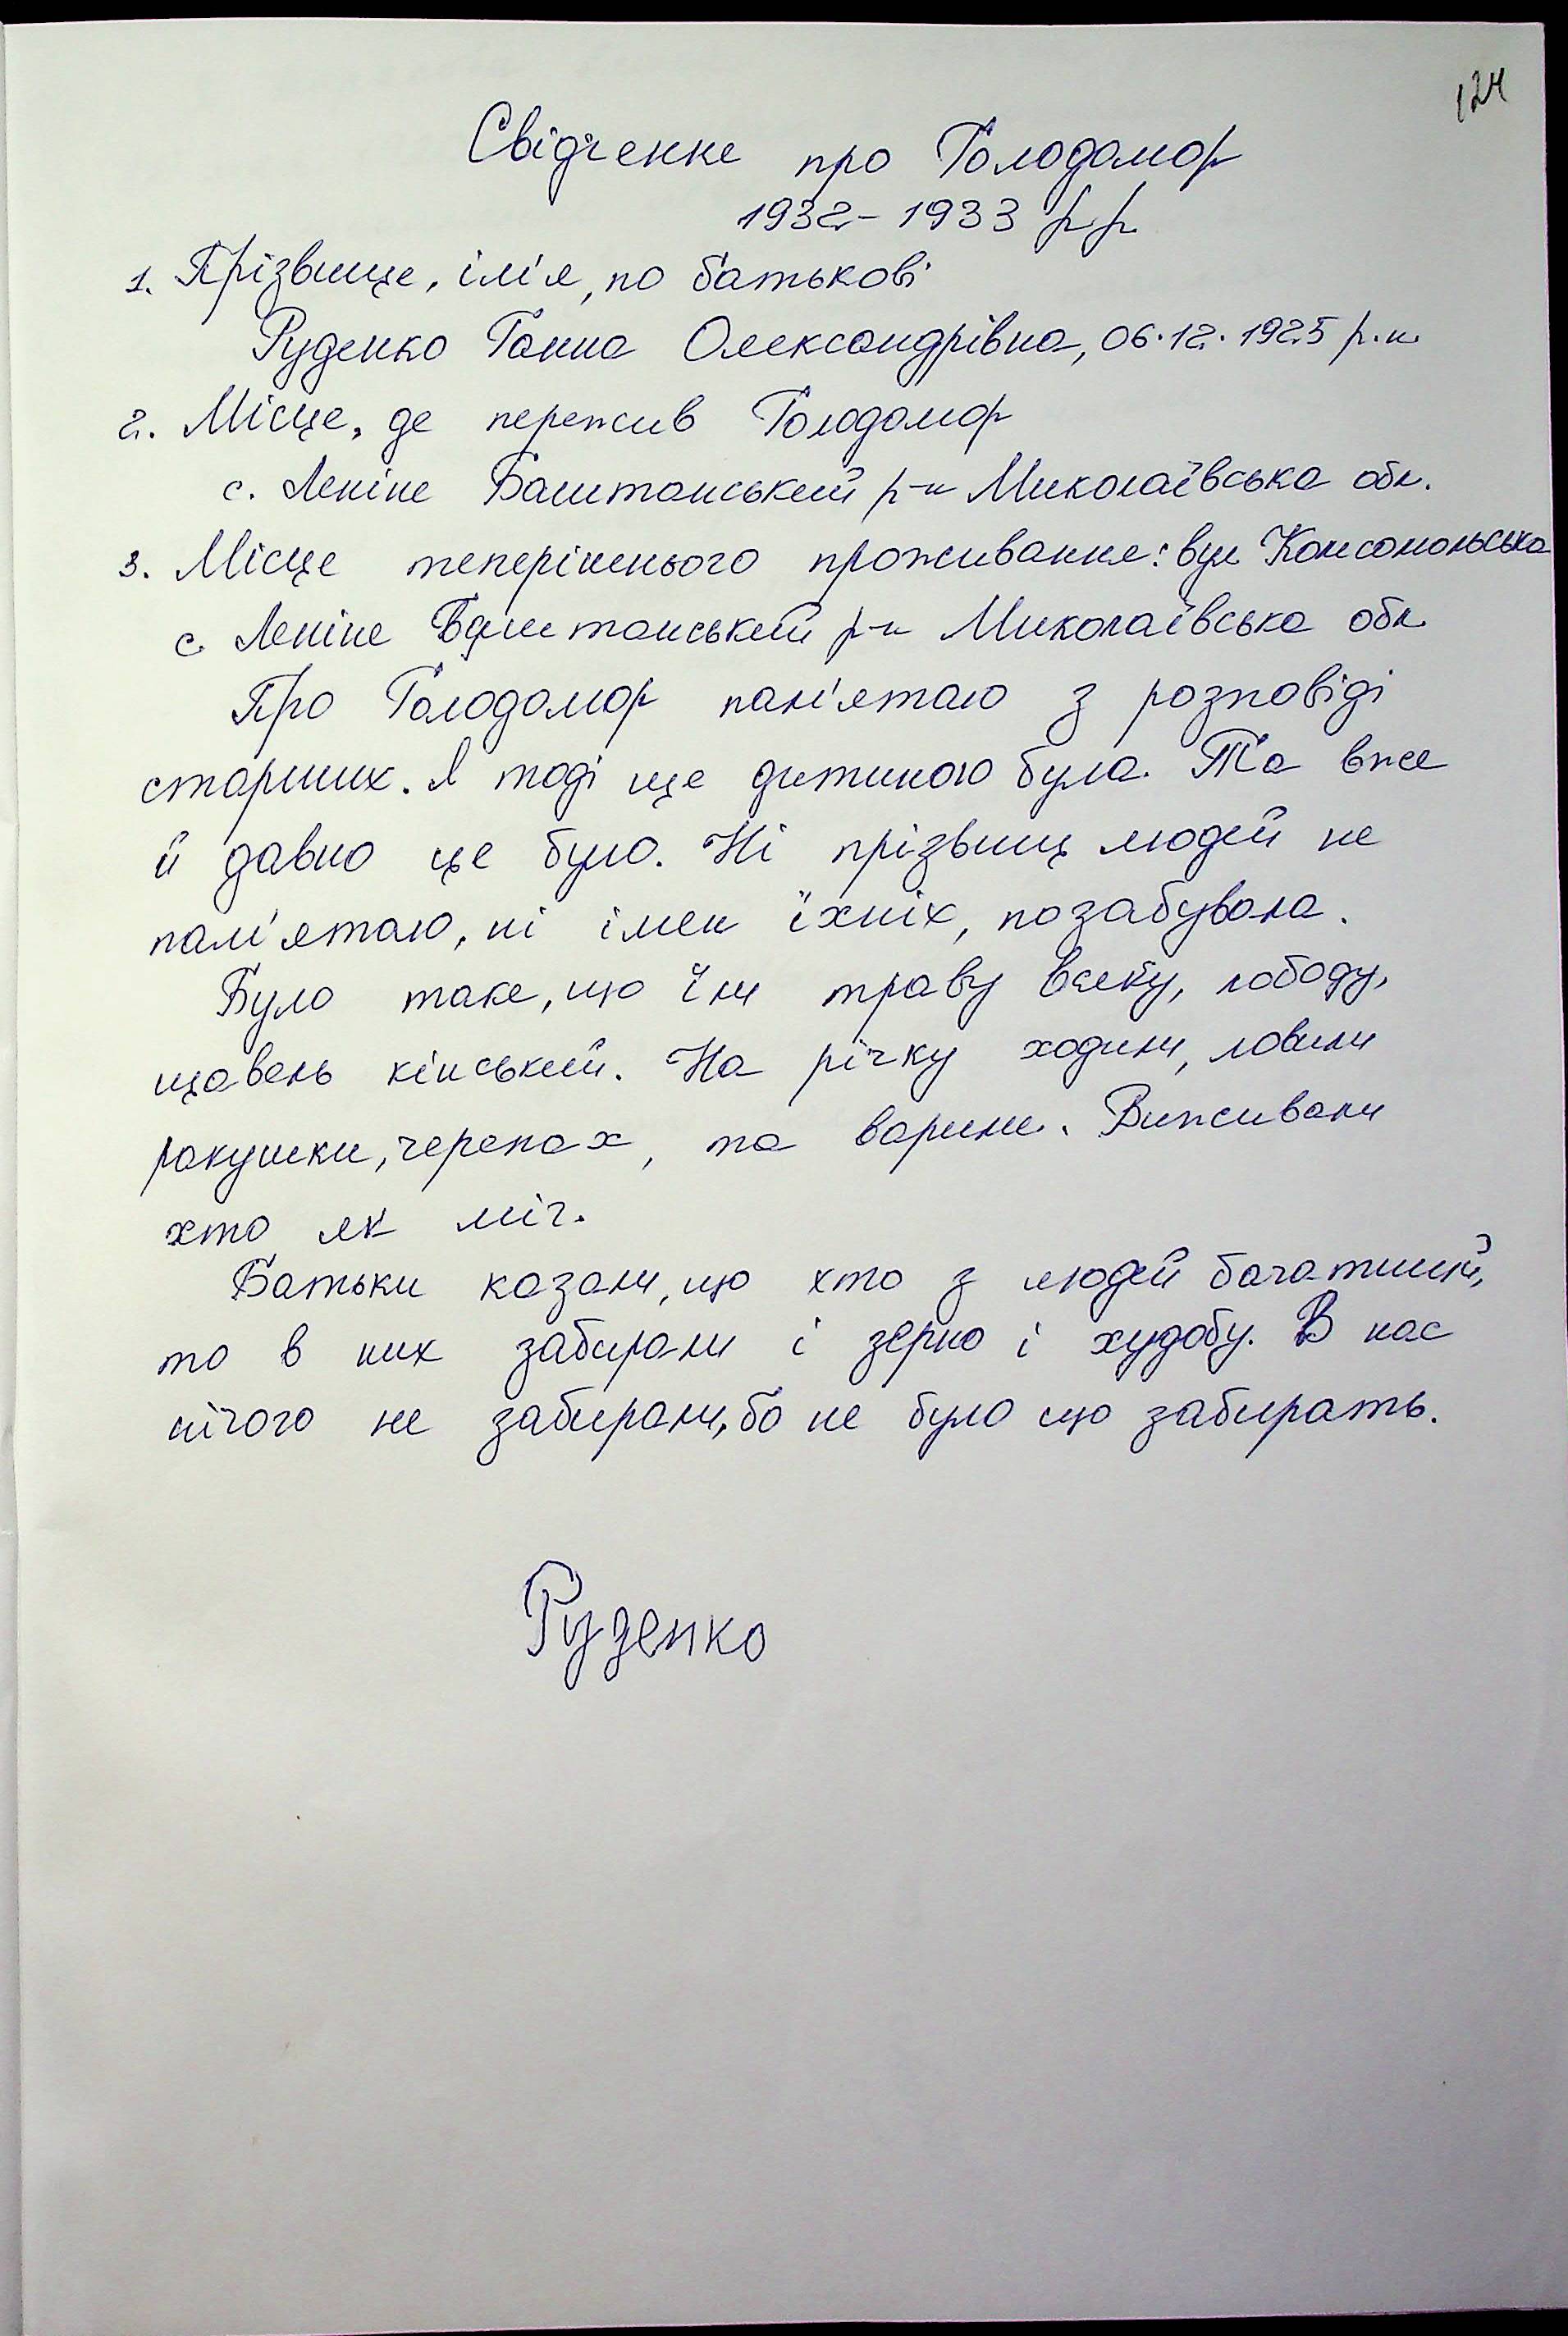 124
Свідчення про Голодомор
1932-1933 р.р.
1. Прізвище, ім'я, по батькові
Руденко Ганна Олександрівна, 06.12.1925 р.н.
2. Місце, де пережив Голодомор
с. Леніне Баштанський р-н Миколаївська обл.
3. Місце теперішнього проживання: вул Комсомольська
с. Леніне Баштанський р-н Миколаївська обл.
Про Голодомор пам'ятаю з розповіді
старших. Я тоді ще дитиною була. Та вже
й давно це було. Ні прізвищ людей не
пам'ятаю, ні імен їхніх, позабувала.
Було таке, що їли траву всяку, лободу,
щавель кінський. На річку ходили, ловили
ракушки, черепах, та варили. Виживали
хто як міг.
Батьки казали, що хто з людей багатший,
то в них забирали і зерно і худобу. В нас
нічого не забирали, бо не було що забирать.
Руденко